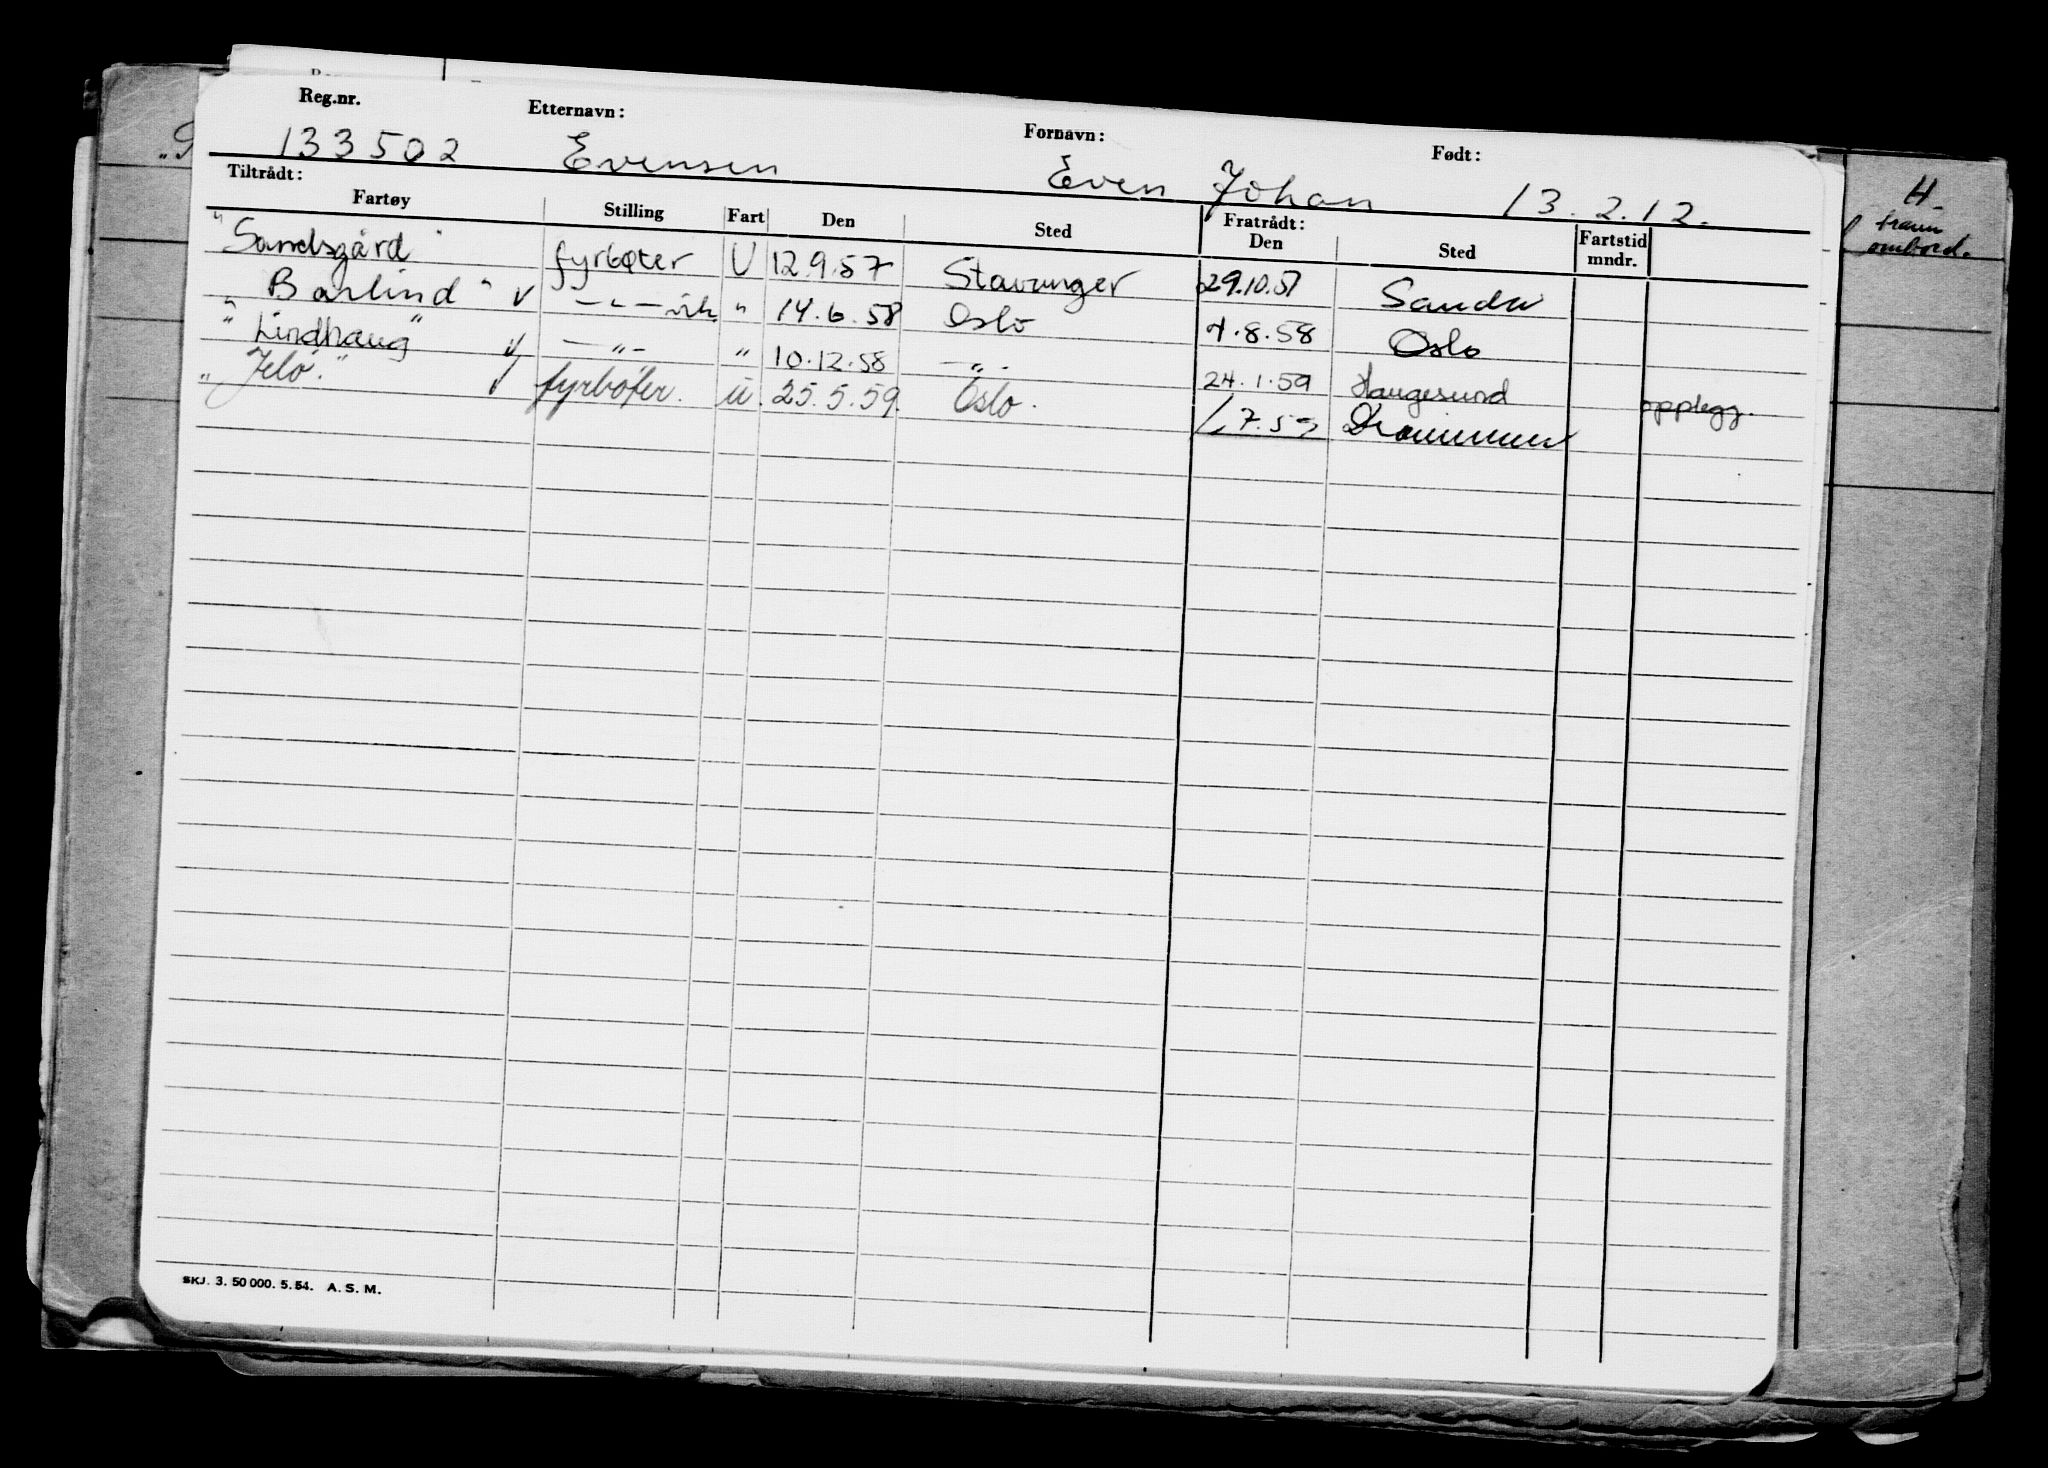 Reg.nr. Etternavn: Fornavn: Født:
133502 Evensen Even Johan 13.2.12.
Tiltrådt: Fratrådt:
Fartøy Stilling Fart Den Sted Den Sted Fartstid mndr.
"Sandsgård" fyrbøter U 12.9.57 Stavanger 29.10.57
"Barlind" v — " — " 14.6.58 Oslo 4.8.58 Oslo
"Lindhaug" v — " — " 10.12.58 — " — 24.1.59 Haugesund opplegg.
"Jelø." v fyrbøter. u. 25.5.59. Oslo. 7.59 Drammen
H.
ombord.
SKJ. 3. 50 000. 5. 54. A. S. M.